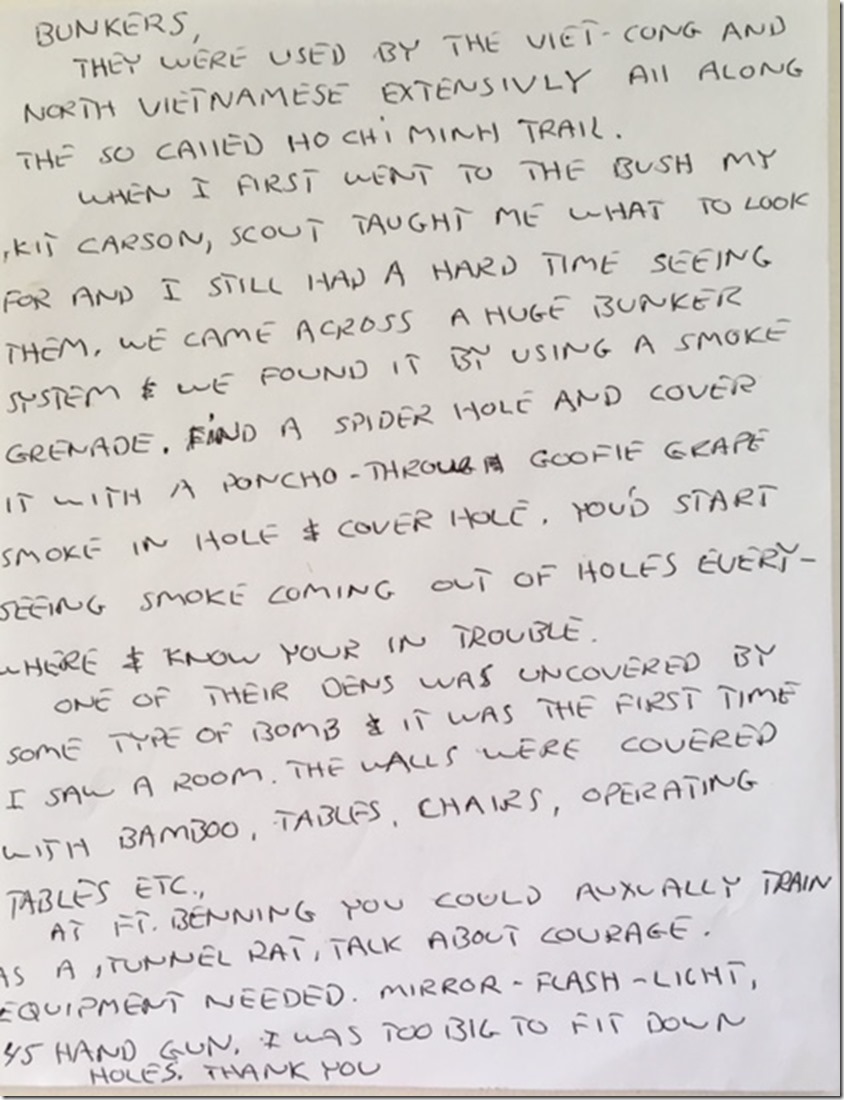 BUNKERS,
THEY WERE USED BY THE VIET-CONG AND
NORTH VIETNAMESE EXTENSIVLY All ALONG
THE SO CAllED HO CHi MINH TRAIL.
WHEN I FIRST WENT TO THE BUSH MY
,KIT CARSON, SCOUT TAUGHT ME WHAT TO LOOK
FOR AND I STILL HAD A HARD TIME SEEING
THEM. WE CAME ACROSS A HUGE BUNKER
SYSTEM & WE FOUND IT BY USING A SMOKE
GRENADE. FIND A SPIDER HOLE AND COVER
IT WITH A PONCHO-THROUGH GOOFIE GRAPE
SMOKE IN HOLE & COVER HOLE. YOU'D START
SEEING SMOKE COMING OUT OF HOLES EVERY-
WHERE & KNOW YOUR IN TROUBLE.
ONE OF THEIR DENS WAS UNCOVERED BY
SOME TYPE OF BOMB & IT WAS THE FIRST TIME
I SAW A ROOM. THE WALLS WERE COVERED
WITH BAMBOO, TABLES, CHAIRS, OPERATING
TABLES ETC.,
AT FT. BENNING YOU COULD AUXUALLY TRAIN
AS A ,TUNNEL RAT, TALK ABOUT COURAGE.
EQUIPMENT NEEDED. MIRROR-FLASH-LIGHT,
45 HAND GUN. I WAS TOO BIG TO FIT DOWN
HOLES. THANK YOU